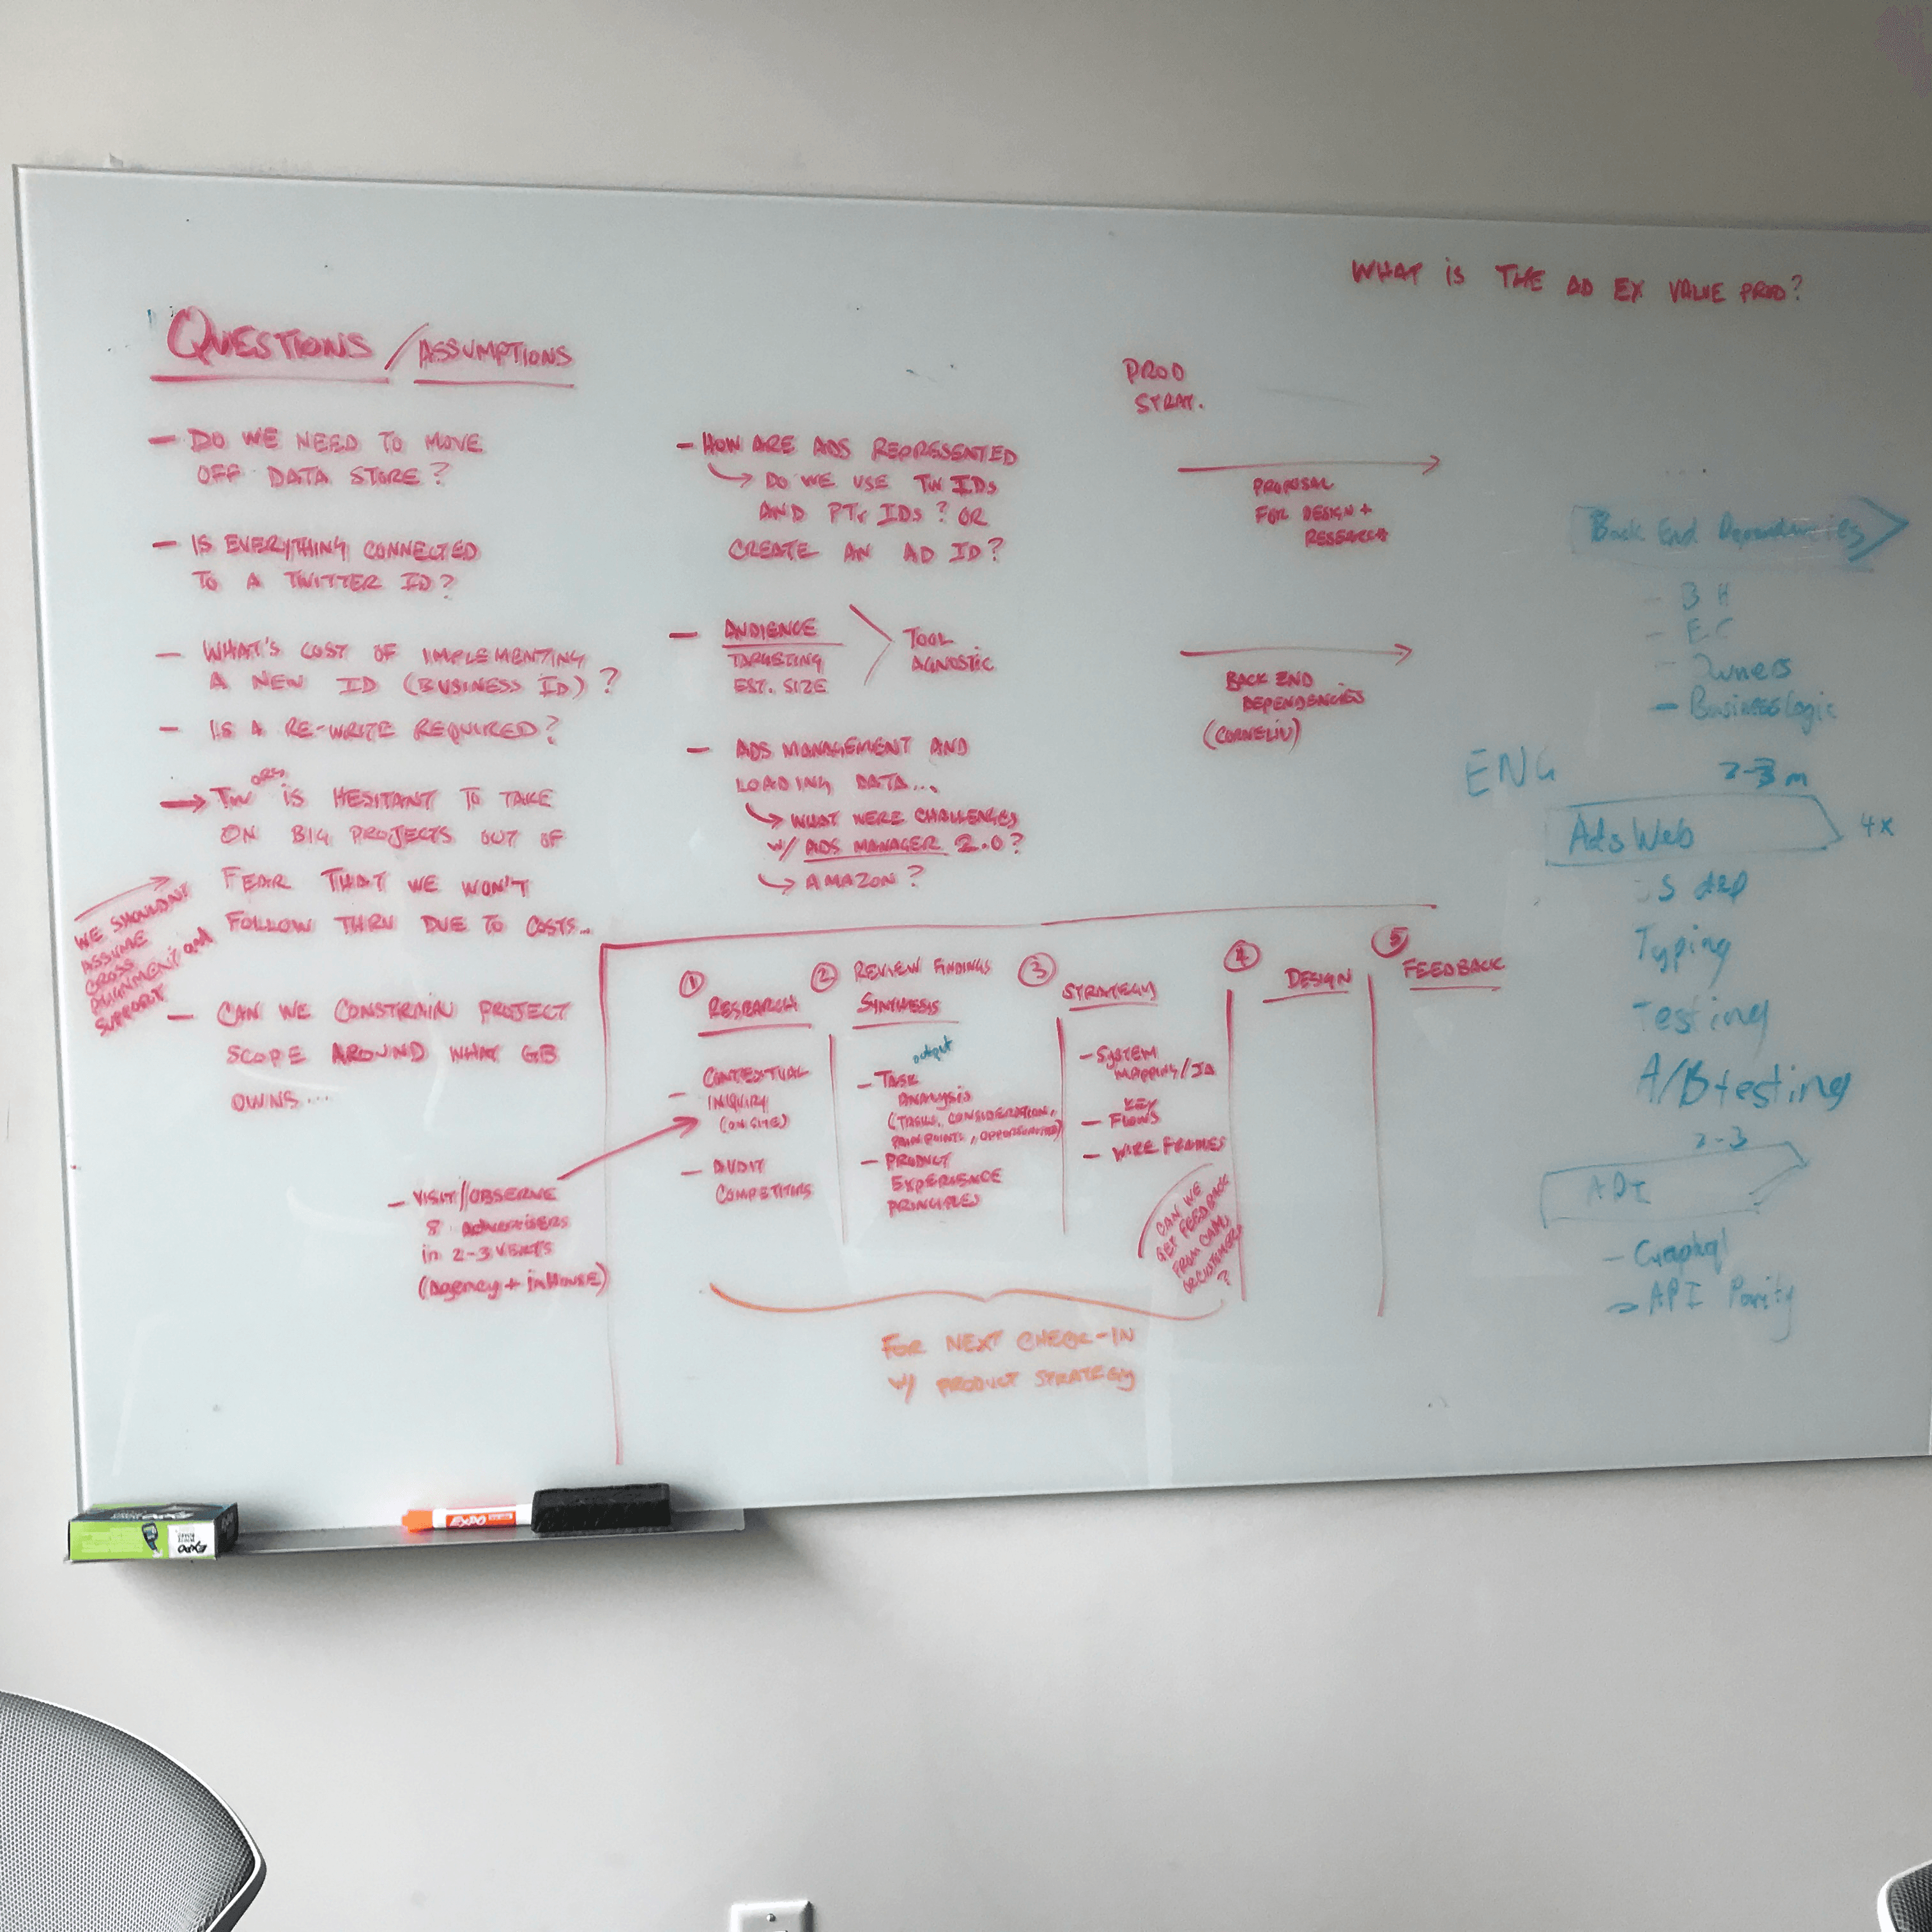 WHAT IS THE AD EX VALUE PROP?
QUESTIONS / ASSUMPTIONS
- DO WE NEED TO MOVE
OFF DATA STORE?
- IS EVERYTHING CONNECTED
TO A TWITTER ID?
- WHAT'S COST OF IMPLEMENTING
A NEW ID (BUSINESS ID)?
- IS A RE-WRITE REQUIRED?
→ TW ORG IS HESITANT TO TAKE
ON BIG PROJECTS OUT OF
FEAR THAT WE WON'T
FOLLOW THRU DUE TO COSTS...
WE SHOULDN'T
ASSUME
CROSS
ALIGNMENT and
SUPPORT
- CAN WE CONSTRAIN PROJECT
SCOPE AROUND WHAT GB
OWNS...
- VISIT/OBSERVE
8 ADVERTISERS
in 2-3 VERTS
(Agency + inHOUSE)
- HOW ARE ADS REPRESENTED
DO WE USE TW IDs
AND PTR IDs? OR
CREATE AN AD ID?
- AUDIENCE
TARGETING
EST. SIZE
TOOL
AGNOSTIC
- ADS MANAGEMENT AND
LOADING DATA...
WHAT WERE CHALLENGES
W/ ADS MANAGER 2.0?
AMAZON?
PROD
STRAT.
PROPOSAL
FOR DESIGN +
RESEARCH
BACK END
DEPENDENCIES
(CORNELIU)
① RESEARCH
- CONTEXTUAL
INQUIRY
(ON SITE)
- AUDIT
COMPETITORS
② REVIEW FINDINGS
SYNTHESIS
output
- TASK
ANALYSIS
(TASKS, CONSIDERATION,
PAIN POINTS, OPPORTUNITIES)
- PRODUCT
EXPERIENCE
PRINCIPLES
③ STRATEGY
- SYSTEM
MAPPING/IA
- KEY
FLOWS
- WIRE FRAMES
CAN WE
GET FEEDBACK
FROM
OR CUSTOMERS
?
④ DESIGN
⑤ FEEDBACK
FOR NEXT CHECK-IN
W/ PRODUCT STRATEGY
Back End Dependencies
- BH
- EC
- Owners
- Business Logic
ENG
2-3 m
Ads Web
4x
Typing
Testing
A/B testing
2-3
API
- Graphql
- API Parity
EXPO
EXPO